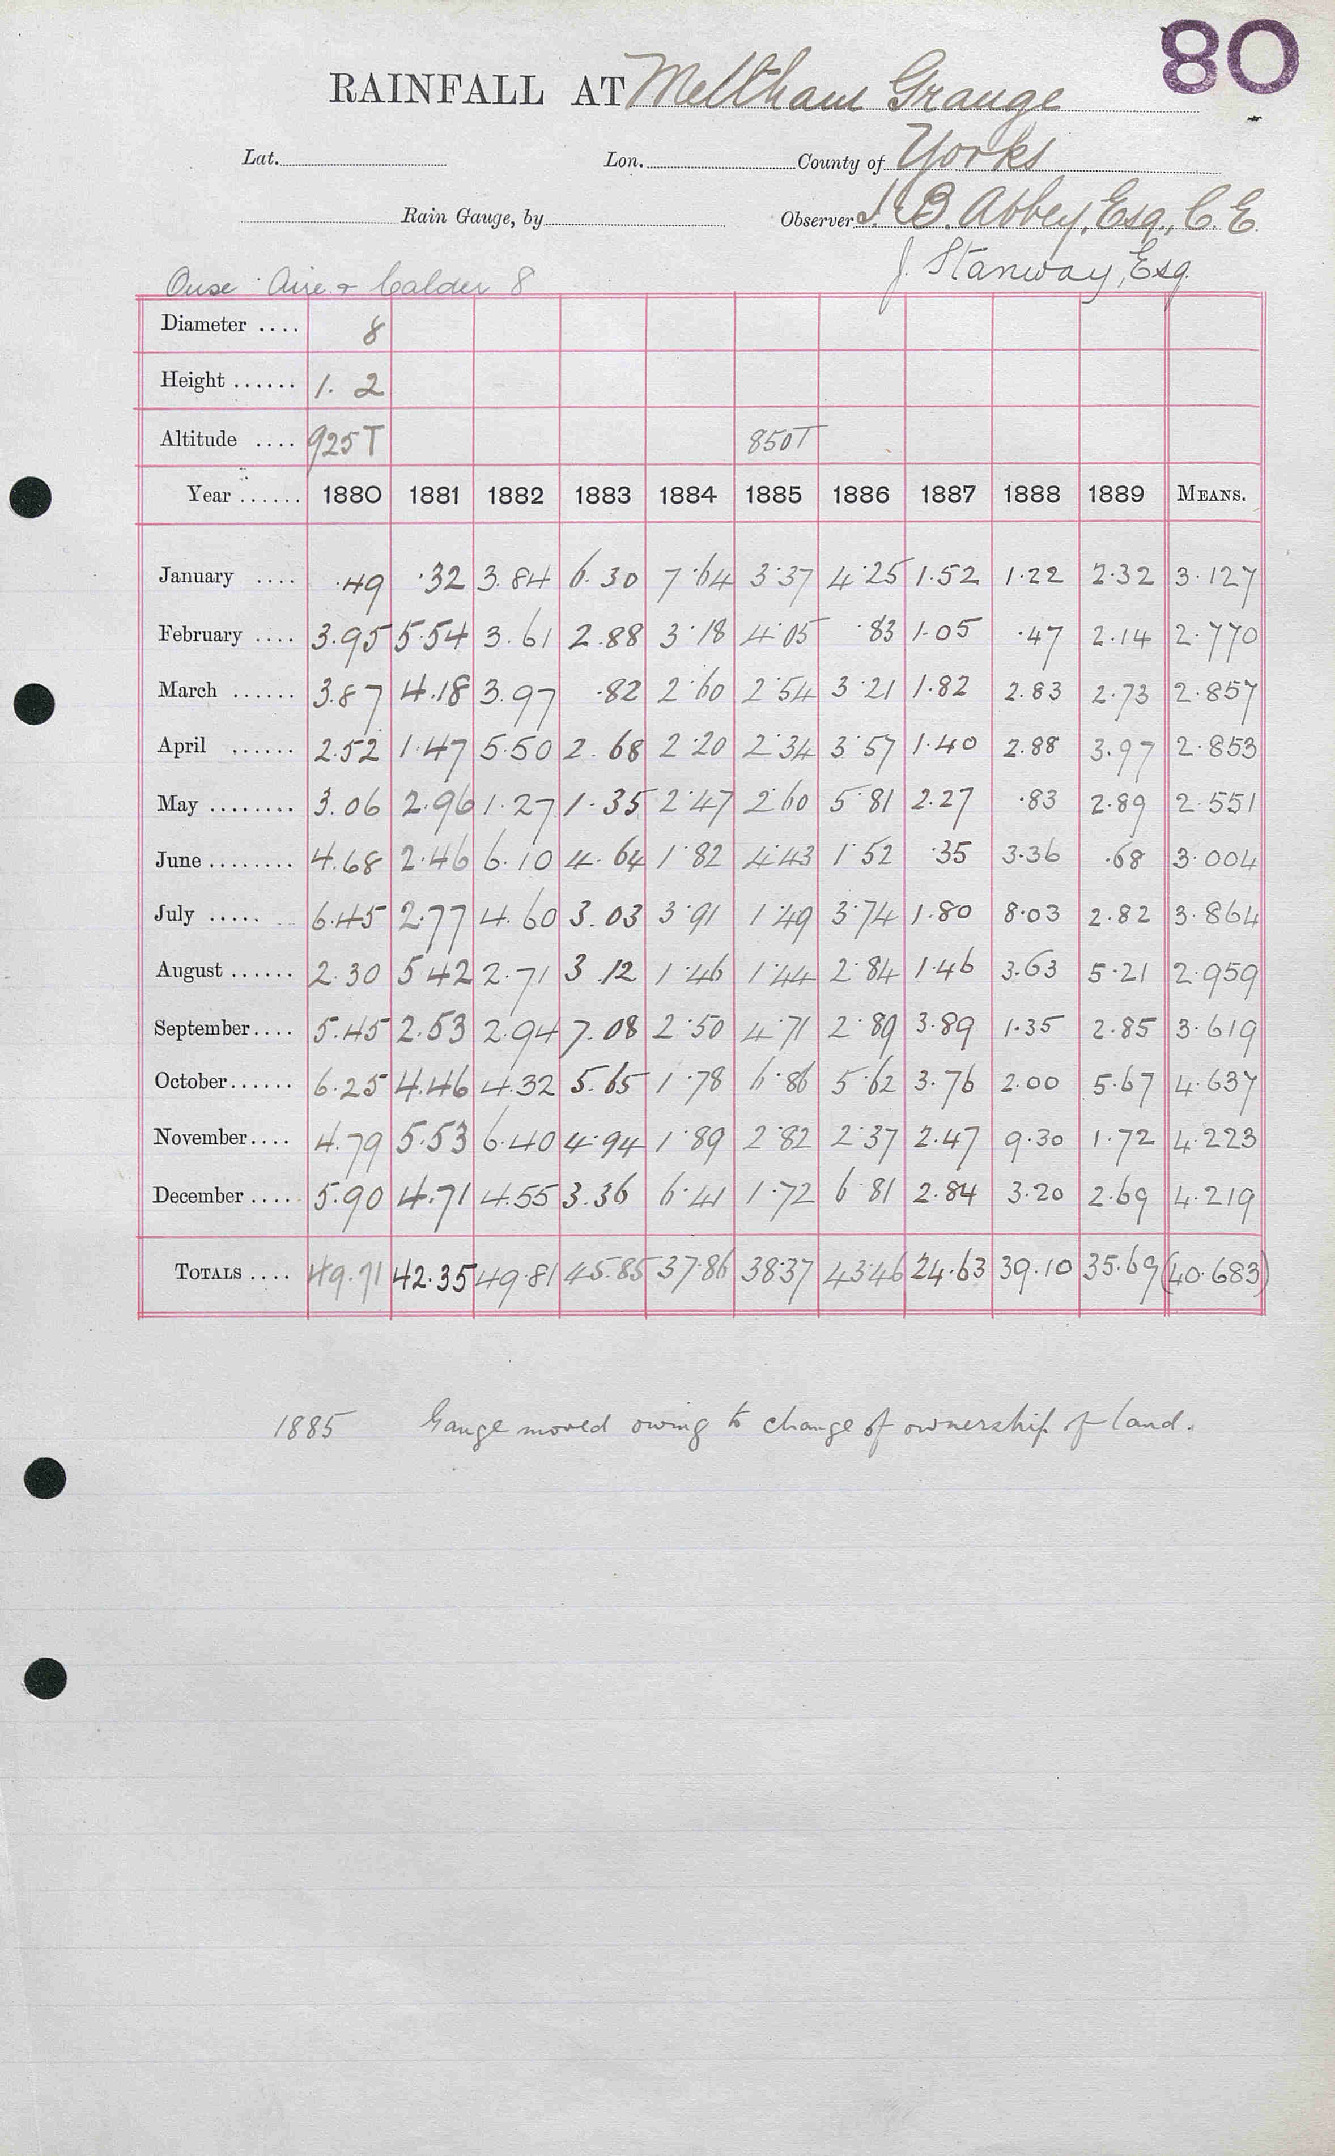 80
RAINFALL AT Meltham Grange
Lat. Lon. County of Yorks
Rain Gauge, by Observer J. B. Abbey, Esq., C.E.
J. Stanway, Esq
Ouse Aire & Calder 8
Diameter .... 8
Height ...... 1. 2
Altitude .... 925T 850T
Year ...... 1880 1881 1882 1883 1884 1885 1886 1887 1888 1889 MEANS.
January .... .49 .32 3.84 6.30 7.64 3.37 4.25 1.52 1.22 2.32 3.127
February .... 3.95 5.54 3.61 2.88 3.18 4.05 .83 1.05 .47 2.14 2.770
March ...... 3.87 4.18 3.97 .82 2.60 2.54 3.21 1.82 2.83 2.73 2.857
April ...... 2.52 1.47 5.50 2.68 2.20 2.34 3.57 1.40 2.88 3.97 2.853
May ........ 3.06 2.96 1.27 1.35 2.47 2.60 5.81 2.27 .83 2.89 2.551
June ........ 4.68 2.46 6.10 4.64 1.82 4.43 1.52 .35 3.36 .68 3.004
July ..... 6.45 2.77 4.60 3.03 3.91 1.49 3.74 1.80 8.03 2.82 3.864
August ...... 2.30 5.42 2.71 3.12 1.46 1.44 2.84 1.46 3.63 5.21 2.959
September .... 5.45 2.53 2.94 7.08 2.50 4.71 2.89 3.89 1.35 2.85 3.619
October ...... 6.25 4.46 4.32 5.65 1.78 6.86 5.62 3.76 2.00 5.67 4.637
November .... 4.79 5.53 6.40 4.94 1.89 2.82 2.37 2.47 9.30 1.72 4.223
December ..... 5.90 4.71 4.55 3.36 6.41 1.72 6.81 2.84 3.20 2.69 4.219
TOTALS .... 49.71 42.35 49.81 45.85 37.86 38.37 43.46 24.63 39.10 35.69 (40.683)
1885 Gauge moved owing to change of ownership of land.